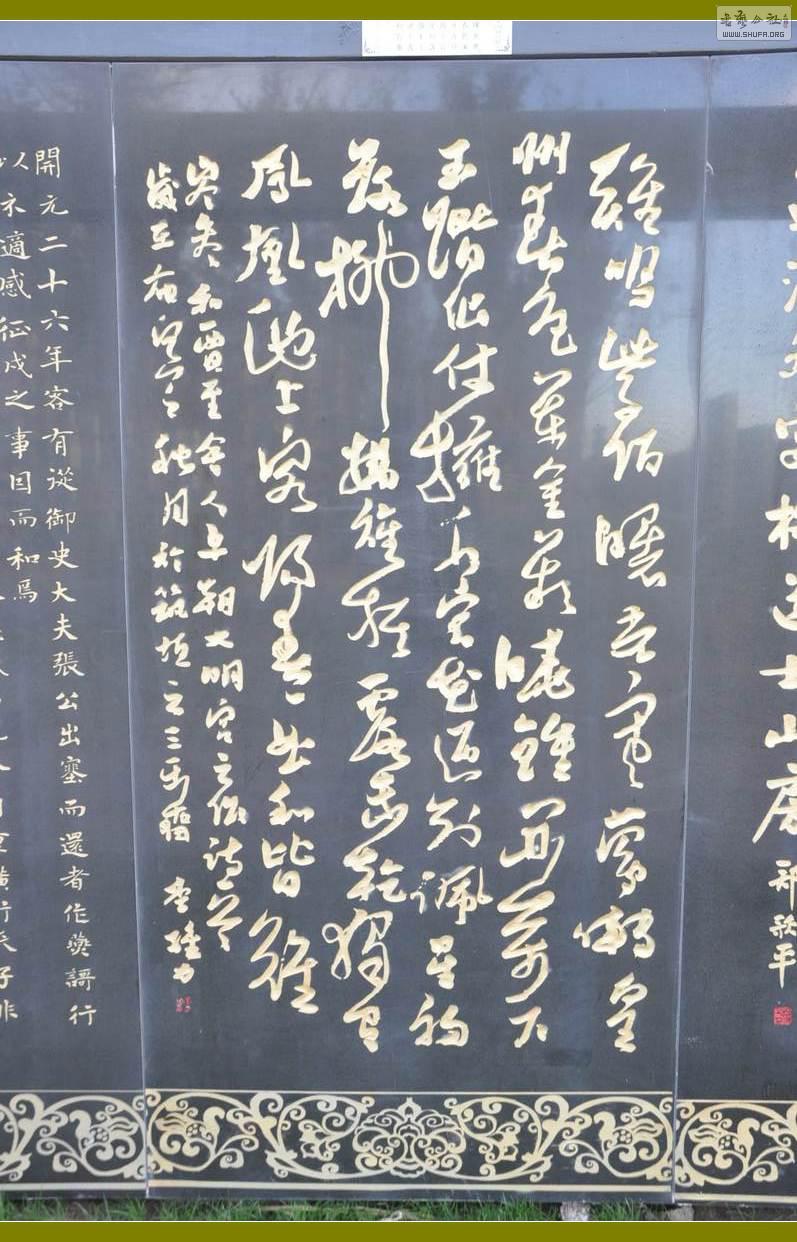 书艺公社
WWW.SHUFA.ORG
道士山房
雞鳴紫陌曙光寒鶯囀皇
州春色闌金闕曉鐘開萬戶
玉階仙仗擁千官花迎劍佩星初
落柳拂旌旗露未乾獨有
鳳凰池上客陽春一曲和皆難
岑參和賈至舍人早朝大明宮之作詩一首
歲在
秋月於筑
開元二十六年客有從御史大夫張公出塞而還者作燕謌行
以示適感征戍之事因而和焉